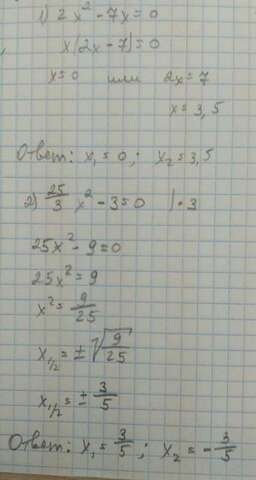 1) 2x² - 7x = 0
x(2x - 7) = 0
x = 0 или 2x = 7
x = 3,5
Ответ: x₁ = 0; x₂ = 3,5
2) 25/3 x² - 3 = 0 | · 3
25x² - 9 = 0
25x² = 9
x² = 9/25
x₁/₂ = ± √(9/25)
x₁/₂ = ± 3/5
Ответ: x₁ = 3/5; x₂ = - 3/5